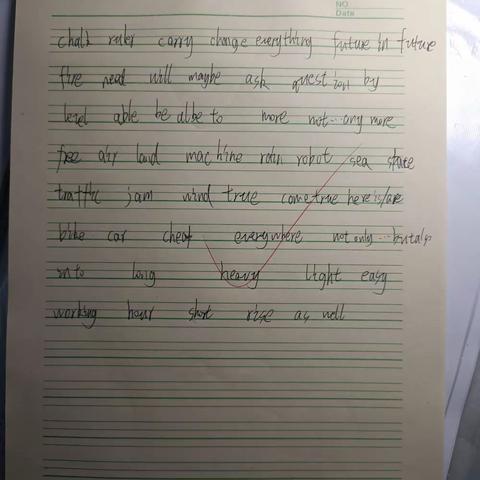 NO.
Date
chalk ruler carry change everything future in future
fire need will maybe ask question by
level able be albe to more not...any more
free air land machine rain robot sea space
traffic jam wind true come true here is/are
bike car cheap everywhere not only...but also
into long heavy light easy
working hour short rise as well